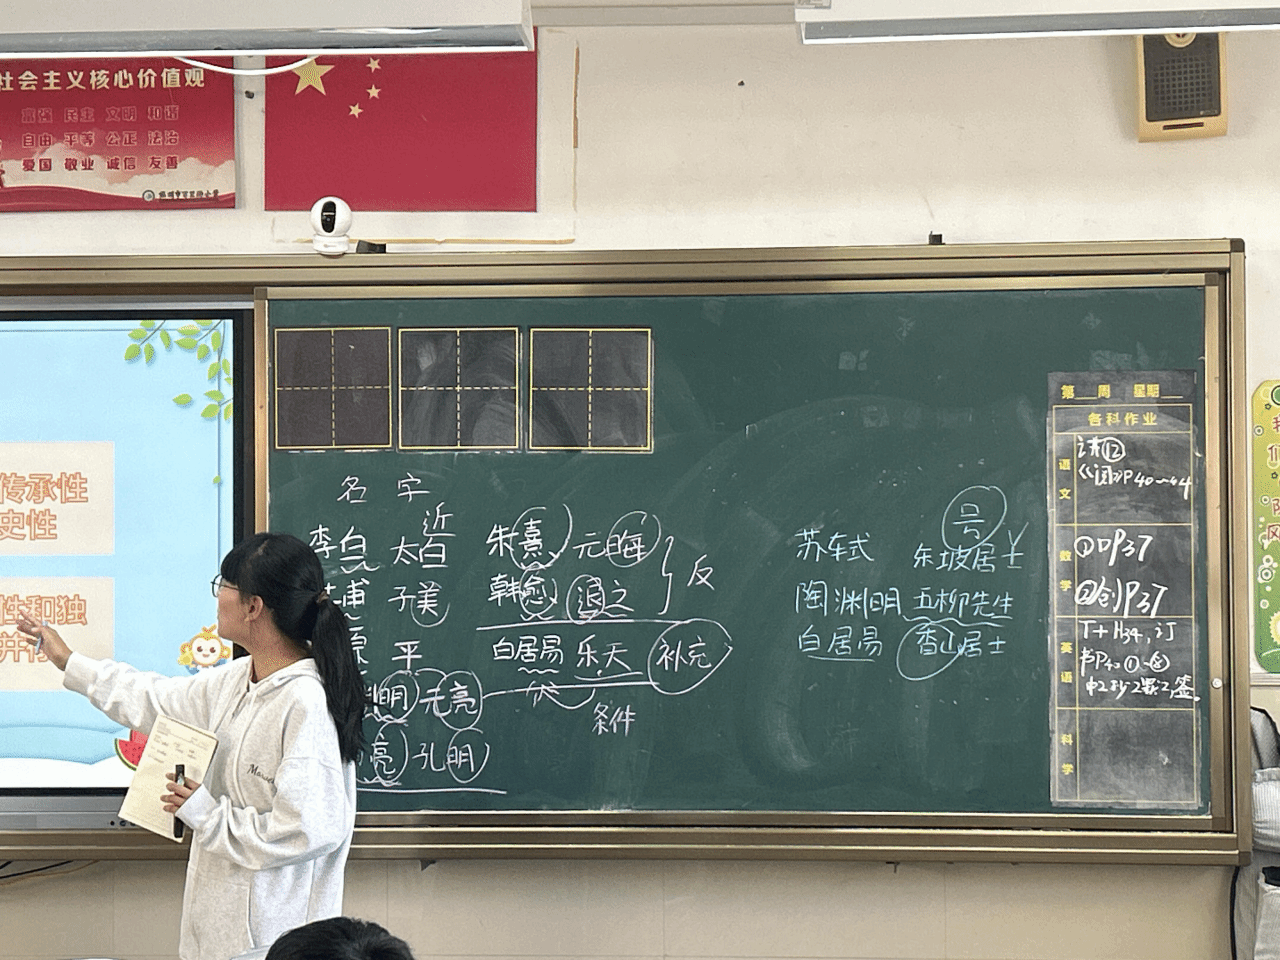 社会主义核心价值观
富强 民主 文明 和谐
自由 平等 公正 法治
爱国 敬业 诚信 友善
传承性
史性
性和独
并存
名 字
李白 太白 近
甫 子美
原 平
明 元亮
亮 孔明
朱熹 元晦
韩愈 退之
反
白居易 乐天 补充
条件
号
苏轼 东坡居士
陶渊明 五柳先生
白居易 香山居士
第 周 星期
各科作业
语文
《阅》P40~44
数学
①口P37
②创P37
英语
T+H34,订
书P40①-⑧
科学